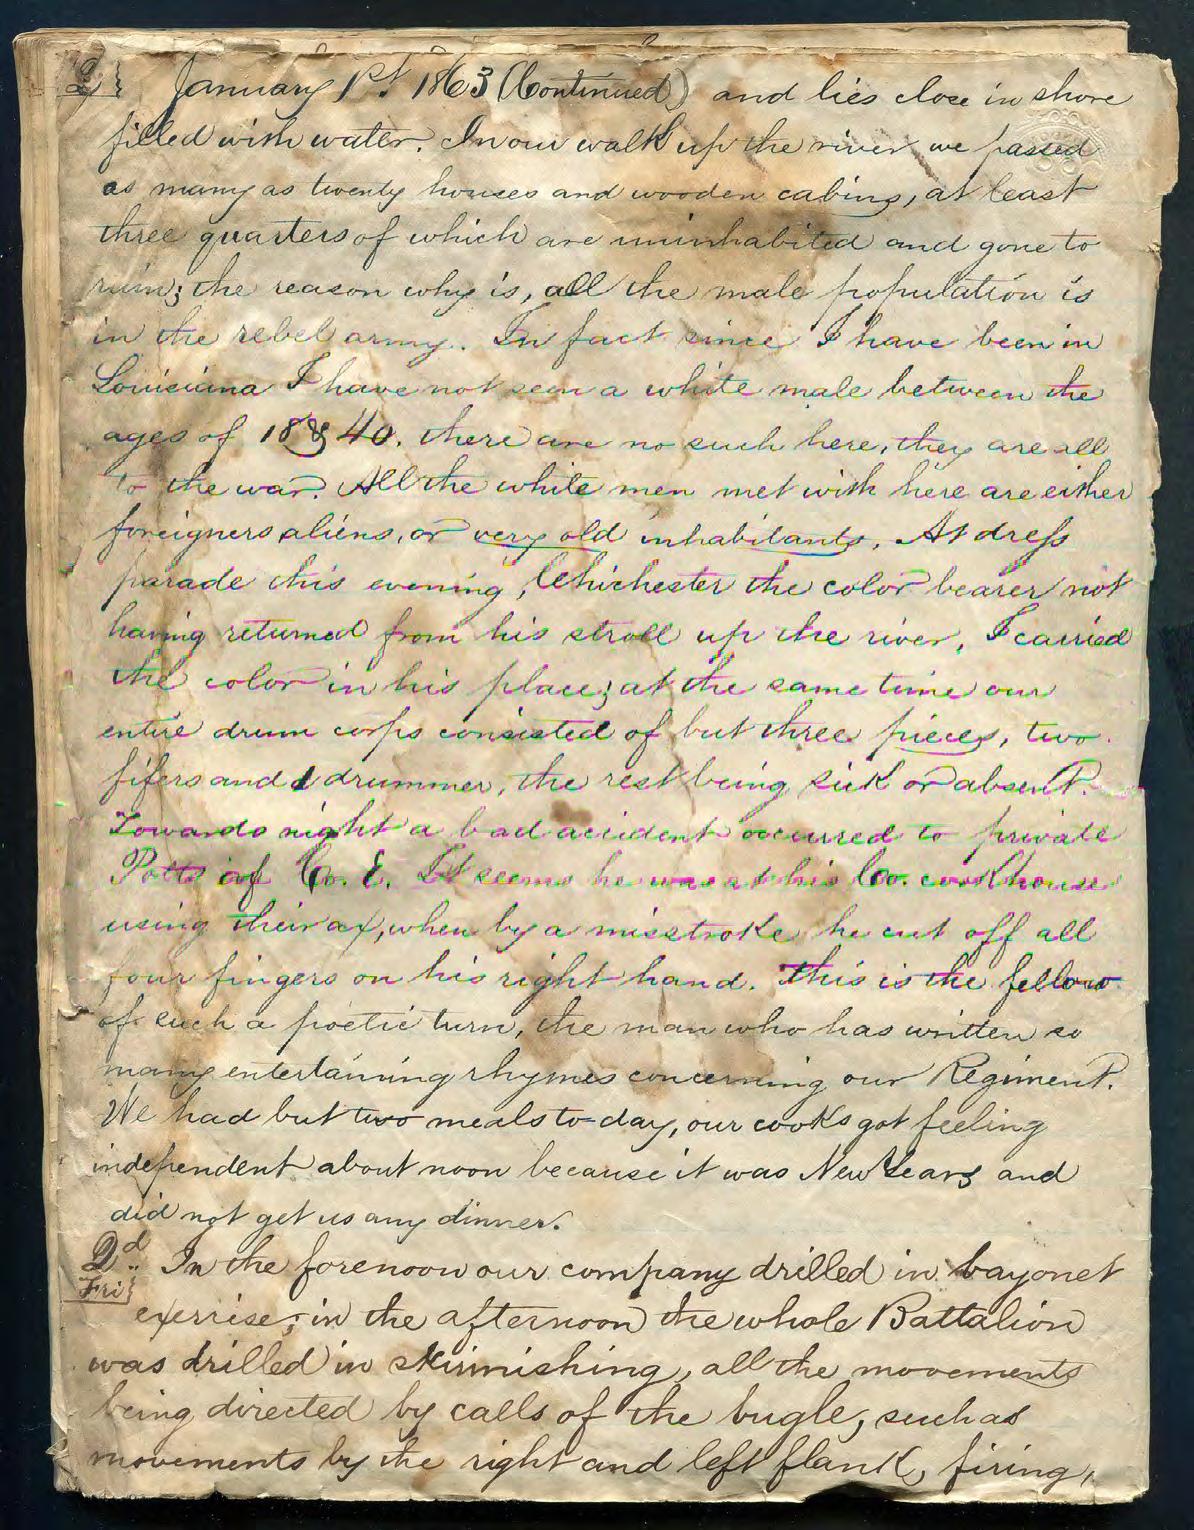 2} January 1st. 1863 (Continued) and lies close in shore
filled with water. In our walk up the river we passed
as many as twenty houses and wooden cabins, at least
three quarters of which are uninhabited and gone to
ruin; the reason why is, all the male population is
in the rebel army. In fact since I have been in
Louisiana I have not seen a white male between the
ages of 18 & 40. there are no such here, they are all
to the war. All the white men met with here are either
foreigners aliens, or very old inhabitants. At dress
parade this evening, Chichester the color bearer not
having returned from his stroll up the river, I carried
the color in his place; at the same time our
entire drum corps consisted of but three pieces, two
fifers and 1 drummer, the rest being sick or absent.
Towards night a bad accident occurred to private
Potts of Co. E. It seems he was at his Co. cookhouse
using their ax, when by a misstroke he cut off all
four fingers on his right hand. This is the fellow
of such a poetic turn, the man who has written so
many entertaining rhymes concerning our Regiment.
We had but two meals to-day, our cooks got feeling
independent about noon because it was New Years and
did not get us any dinner.
2d.. In the forenoon our company drilled in bayonet
Fri} exersise; in the afternoon the whole Battalion
was drilled in skirmishing, all the movements
being directed by calls of the bugle, such as
movements by the right and left flank, firing,